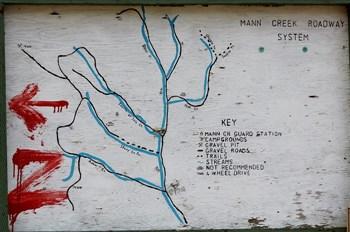 MANN CREEK ROADWAY
SYSTEM
KEY
MANN CR GUARD STATION
CAMPGROUNDS
GRAVEL PIT
GRAVEL ROADS
TRAILS
STREAMS
NOT RECOMMENDED
4 WHEEL DRIVE